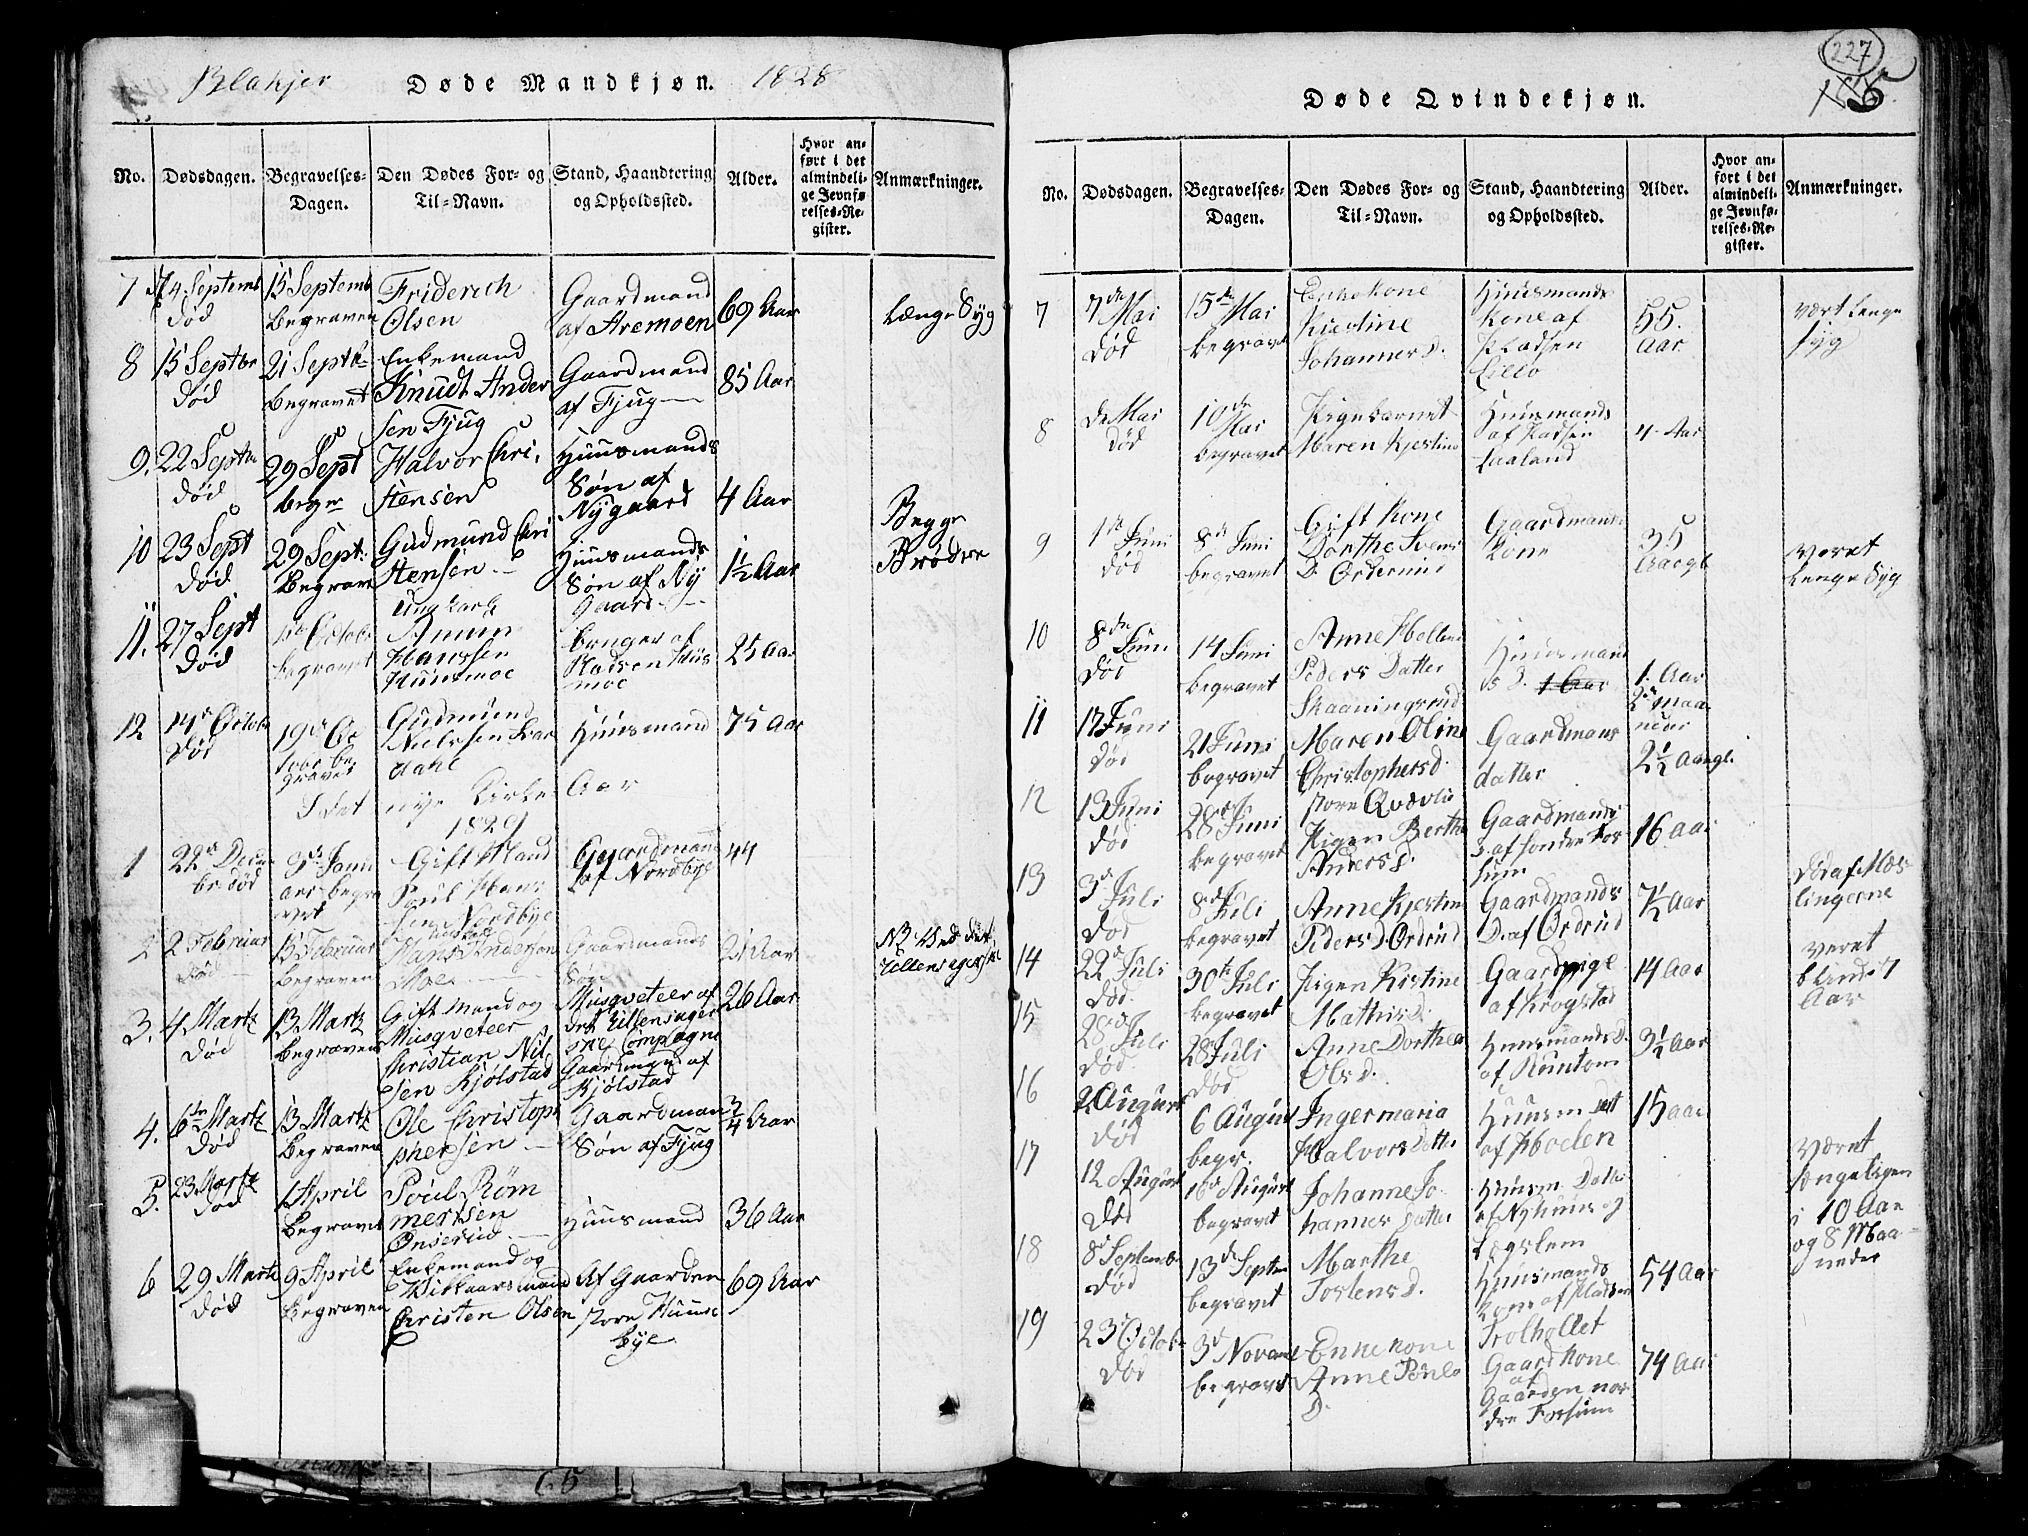 Blakjer Døde Mandkjøn. 1828
No.
Dødsdagen.
Begravelses-
Dagen.
Den Dødes For- og
Til-Navn.
Stand, Haandtering
og Opholdssted.
Alder.
Hvor an-
ført i det
almindeli-
ge Jevnfø-
relses-Re-
gister.
Anmærkninger.
7
14 Septemb
død
15 Septemb
Begraven
Friderich
Olsen
Gaardmand
af Aremoen
69 Aar
Længe Syg
8
15 Septbr
død
21 Septbr
Begravet
Enkemand
Knudt Ander
sen Fjug
Gaardmand
af Fjug
85 Aar
9.
22 Septbr
død
29 Sept
begr
Halvor Chri-
stensen
Huusmands
Søn af
Nygaard
4 Aar
10
23 Sept
død
29 Sept:
Begrave
Gudmund Chri
stensen
Huusmands
Søn af Ny
Gaard
1½ Aar
Begge
Brødre
11.
27 Sept
død
Octobr
begravet
Ungkarl
Amun
Hanssen
Huusmoe
bruger af
Pladsen Huus
moe
25 Aar
12
14de Octobr
død
19de Oc
tobr be
gravet
Gudmund
Nielssen
dahl
Huusmand
75 Aar
I det nye Kirke Aar
1829
1
22de Decem
br død
3de Janu
ari begra
vet
Gift Mand
Poul Hans
sen Nordbye
Gaardmand
af Nordbye
44
2
2 Februar
død
15 Februar
Begraven
Hans Andersen
Moe
Gaardmands
Søn
21 Aar
NB Ved det
Ullensagerske
3.
4 Martz
død
13 Martz
Begraven
Gift Mand og
Musqveteer
Christian Nil
sen Kjølstad
Musqveteer af
det Ullensager
ske Compagne
Gaardmand af
Kjølstad
26 Aar
4.
6te Martz
død
13 Martz
Begraven
Ole Christoph
phersen
Gaardman
Søn af Fjug
3/4 Aar
5.
23 Martz
død
1 April
Begravet
Poul Røm
mertsen
Onserud
Huusmand
36 Aar
6
29 Martz
død
9 April
Begraven
Enkemand og
Vilkaarsmand
Christen Olsen
Af Gaarden
store Huuse
bye
69 Aar
227
Døde Qvindekjøn.
No.
Dødsdagen.
Begravelses-
Dagen.
Den Dødes For- og
Til-Navn.
Stand, Haandtering
og Opholdssted.
Alder.
Hvor an-
ført i det
almindeli-
ge Jevnfø-
relses-Re-
gister.
Anmærkninger.
7
7de Mai
død
15de Mai
begravet
Enkekone
Kiestine
Johannesd.
Huusmands
Kone af
Pladsen
Lillo
55.
Aar
vært Lenge
syg
8
de Mai
død
10de
Mai
begravet
Pigebarnet
Maren Kjestine
Huusmands
af Pladsen
Faaland
4. Aar
9
1de Juni
død
8de Juni
begravet
Gift Kone
Dorthe Svens
D. Orderud
Gaardmands
Kone
35
Aargl
Været
Lenge Syg
10
8de
Juni
død
14 Juni
begravet
Anne Hellene
Peders Datter
Skaaningsrud
Huusmand
s D. 1 Aar
1. Aar
2de Maa
neder
11
17 Juni
død
21 Juni
begravet
Maren Oline
Christophersd.
store Qvævlie
Gaardmans
datter
2½ Aargl.
12
13 Juni
død
28de Juni
begravet
Pigen Berthe
Andersd.
Gaardmands
D. af søndre For
sum
16 Aar
13
3de Juli
død
8de Juli
begravet
Anne Kjestine
Pedersd. Ordrud
Gaardmands
D. af Ordrud
7½ Aar
død af Mæs-
lingerne
14
22de Juli
død
30te Juli
begravet
Pigen Kistine
Mathisd:
Gaardpige
af Krogstad
14 Aar
veret
blind i 7
Aar
15
28de Juli
død.
28 Juli
død
Anne Dorthea
Ols d.
Huusmands D.
af Runtom
3½ Aar
16
2 August
død
6 August
begr.
Ingermaria
Halvorsdatter
Huusm Datt
af Moelen
15 aar
17
12 August
død
16de August
begravet
Johanne Jo-
hannes Datter
Huusm Datter
af Nyhuus og
Legslem
Været
sengeligen
i 10 Aar
og 8 Maa-
neder
18
8de Septembr
død
13de Septbr
begravet
Marthe
Tostensd.
Huusmands
Kone af Pladsen
Trolhollet
54 Aar
19
23 Octobr
død
3de Novembr
begravet
Enkekone
Anne Pouls
D.
Gaardkone
af
Gaarden nor
dre Forsum
74 Aar